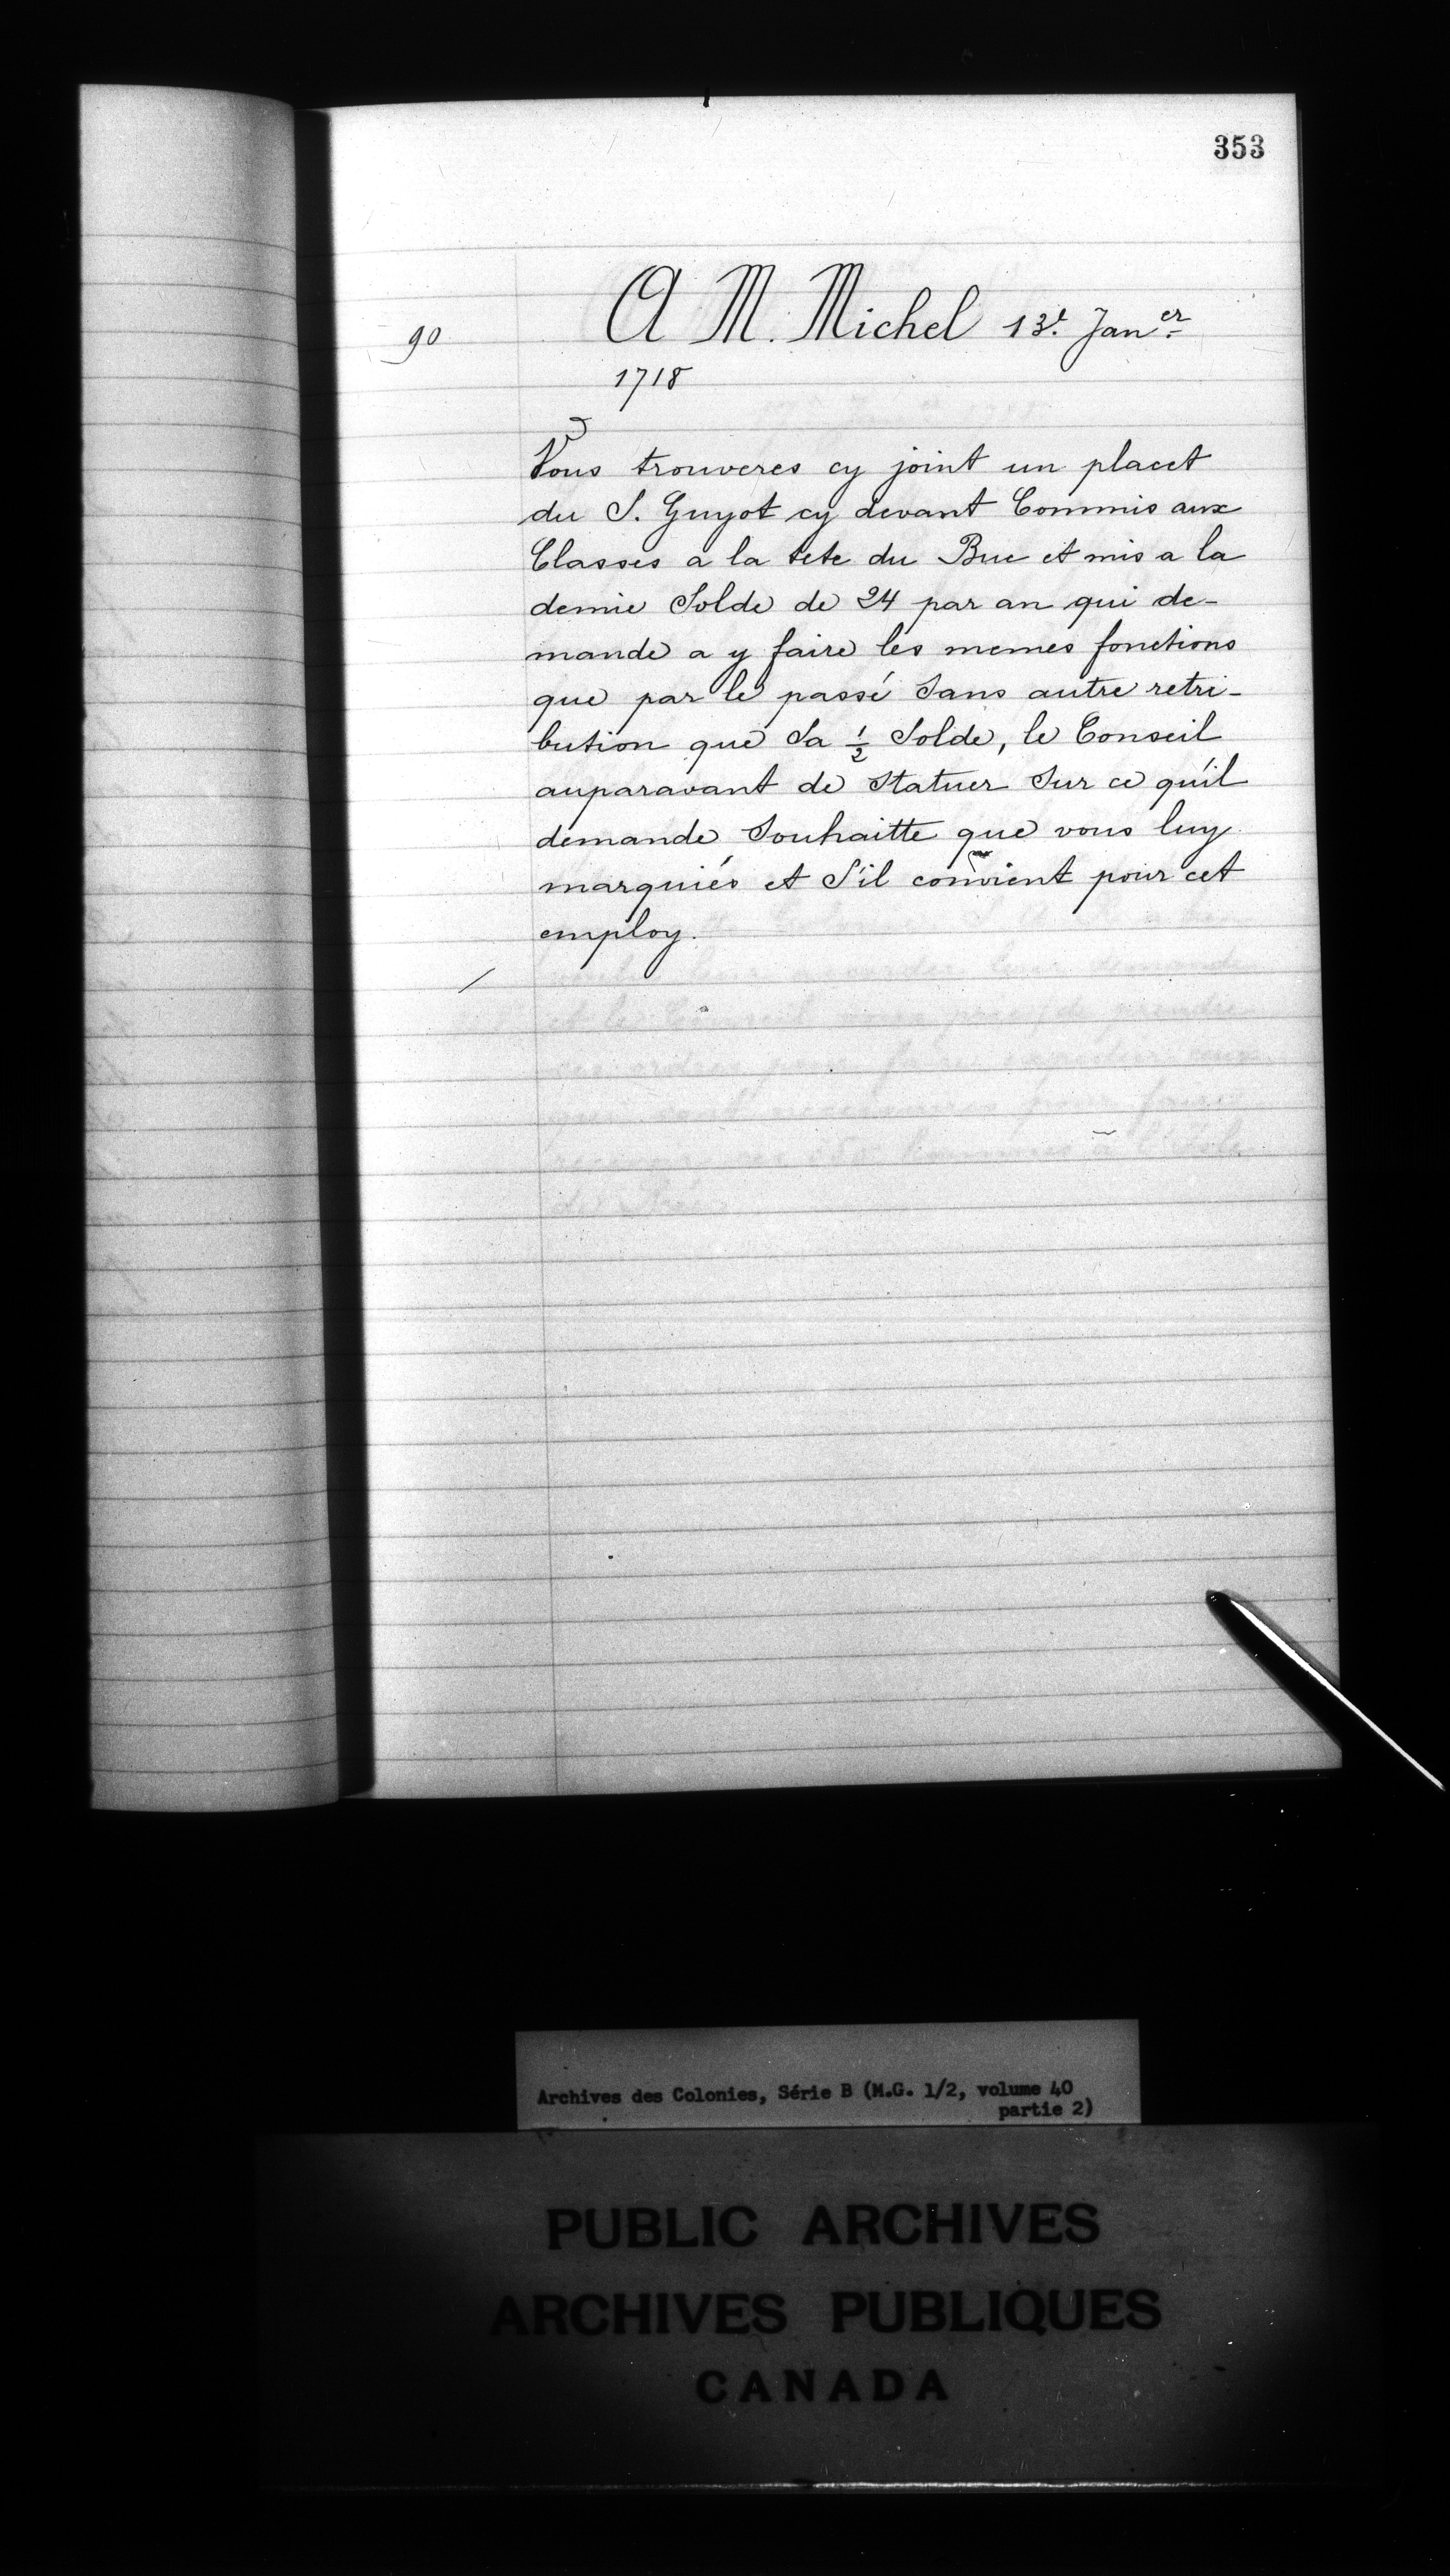 353
90
A M. Michel 13e. Janer
1718
Vous trouveres cy joint un placet
du S. Guyot cy devant Commis aux
Classes a la tete du Buc et mis a la
demie Solde de 24 par an qui de-
mande a y faire les memes fonctions
que par le passé Sans autre retri-
bution que Sa ½ Solde, le Conseil
auparavant de Statuer Sur ce qu'il
demande Souhaitte que vous luy
marquiés et S'il convient pour cet
employ.
Archives des Colonies, Série B (M.G. 1/2, volume 40
partie 2)
PUBLIC ARCHIVES
ARCHIVES PUBLIQUES
CANADA